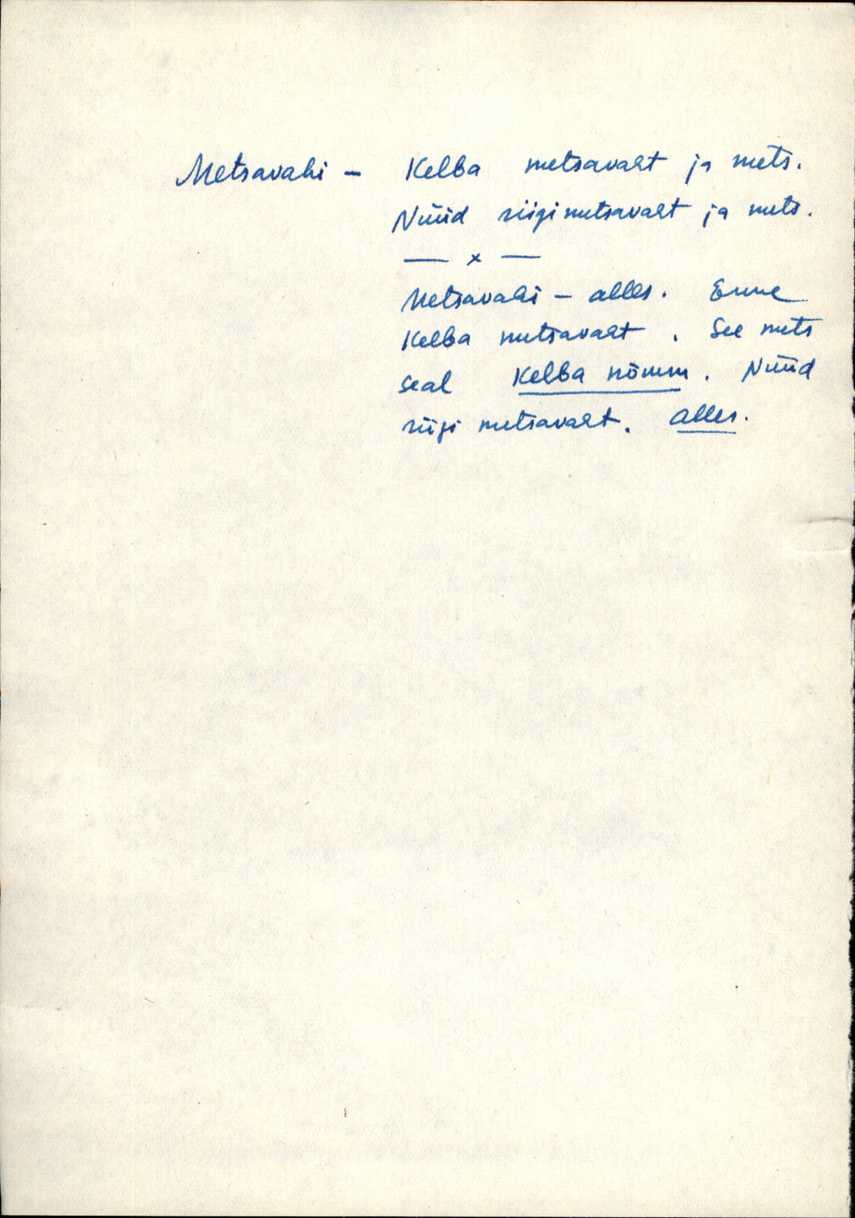 Metsavahi – Kelba metsavaht ja mets.
Nüüd riigimetsavaht ja mets.
— x —
Metsavahi – alles. Enne
Kelba metsavaht. See mets
seal Kelba nõmm. Nüüd
riigi metsavaht. alles.